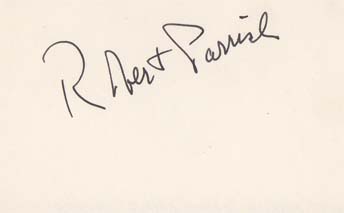 Robert Parrish